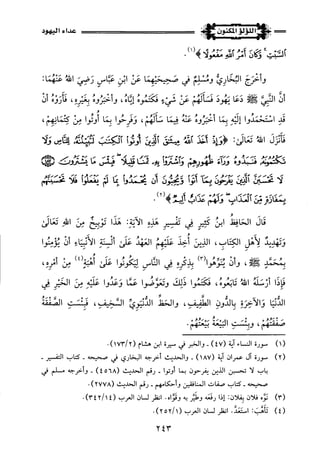 اللؤلؤ المكنون
عداء اليهود
السَّبْتِ وَكَانَ أَمْرُ اللَّهِ مَفْعُولًا﴾(١).
وأَخْرَجَ البُخَارِيُّ ومُسْلِمٌ في صَحِيحَيْهِمَا عَنْ ابْنِ عَبَّاسٍ رَضِيَ اللهُ عَنْهُمَا:
أَنَّ النَّبِيَّ ﷺ دَعَا يَهُودَ فَسَأَلَهُمْ عَنْ شَيْءٍ فَكَتَمُوهُ إِيَّاهُ، وأَخْبَرُوهُ بِغَيْرِهِ، فَأَرَوْهُ أَنْ
قَدِ اسْتَحْمَدُوا إِلَيْهِ بِمَا أَخْبَرُوهُ عَنْهُ فِيمَا سَأَلَهُمْ، وَفَرِحُوا بِمَا أُوتُوا مِنْ كِتْمَانِهِمْ،
فَأَنْزَلَ اللهُ تَعَالَى: ﴿وَإِذْ أَخَذَ اللَّهُ مِيثَاقَ الَّذِينَ أُوتُوا الْكِتَابَ لَتُبَيِّنُنَّهُ لِلنَّاسِ وَلَا
تَكْتُمُونَهُ فَنَبَذُوهُ وَرَاءَ ظُهُورِهِمْ وَاشْتَرَوْا بِهِ ثَمَنًا قَلِيلًا فَبِئْسَ مَا يَشْتَرُونَ
لَا تَحْسَبَنَّ الَّذِينَ يَفْرَحُونَ بِمَا أَتَوْا وَيُحِبُّونَ أَنْ يُحْمَدُوا بِمَا لَمْ يَفْعَلُوا فَلَا تَحْسَبَنَّهُمْ
بِمَفَازَةٍ مِنَ الْعَذَابِ وَلَهُمْ عَذَابٌ أَلِيمٌ﴾(٢).
قَالَ الحَافِظُ ابنُ كَثِيرٍ في تَفْسِيرِ هَذِهِ الآيَةِ: هَذَا تَوْبِيخٌ مِنَ اللهِ تَعَالَى
وَتَهْدِيدٌ لِأَهْلِ الكِتَابِ، الذِينَ أُخِذَ عَلَيْهِمُ العَهْدُ عَلَى أَلْسِنَةِ الأَنْبِيَاءِ أَنْ يُؤْمِنُوا
بِمُحَمَّدٍ ﷺ، وأَنْ يُنَوِّهُوا(٣) بِذِكْرِهِ فِي النَّاسِ لِيَكُونُوا عَلَى أُهْبَةٍ(٤) مِنْ أَمْرِهِ،
فَإِذَا أَرْسَلَهُ اللهُ تَابَعُوهُ، فَكَتَمُوا ذَلِكَ وتَعَوَّضُوا عَمَّا وُعِدُوا عَلَيْهِ مِنَ الخَيْرِ فِي
الدُّنْيَا وَالآخِرَةِ بِالدُّونِ الطَّفِيفِ، والحَظِّ الدُّنْيَوِيِّ السَّخِيفِ، فَبِئْسَتِ الصَّفْقَةُ
صَفْقَتُهُمْ، وبِئْسَتِ البَيْعَةُ بَيْعَتُهُمْ.
(١) سورة النساء آية (٤٧) - والخبر في سيرة ابن هشام (١٧٣/٢).
(٢) سورة آل عمران آية (١٨٧) - والحديث أخرجه البخاري في صحيحه - كتاب التفسير -
باب لا تحسبن الذين يفرحون بما أوتوا - رقم الحديث (٤٥٦٨) - وأخرجه مسلم في
صحيحه - كتاب صفات المنافقين وأحكامهم - رقم الحديث (٢٧٧٨).
(٣) نَوَّه فلان بفلان: إذا رفعه وطَيَّر به وقَوَّاه. انظر لسان العرب (٣٤٢/١٤).
(٤) تَأَهَّبَ: استَعَدَّ. انظر لسان العرب (٢٥٢/١).
٢٤٣